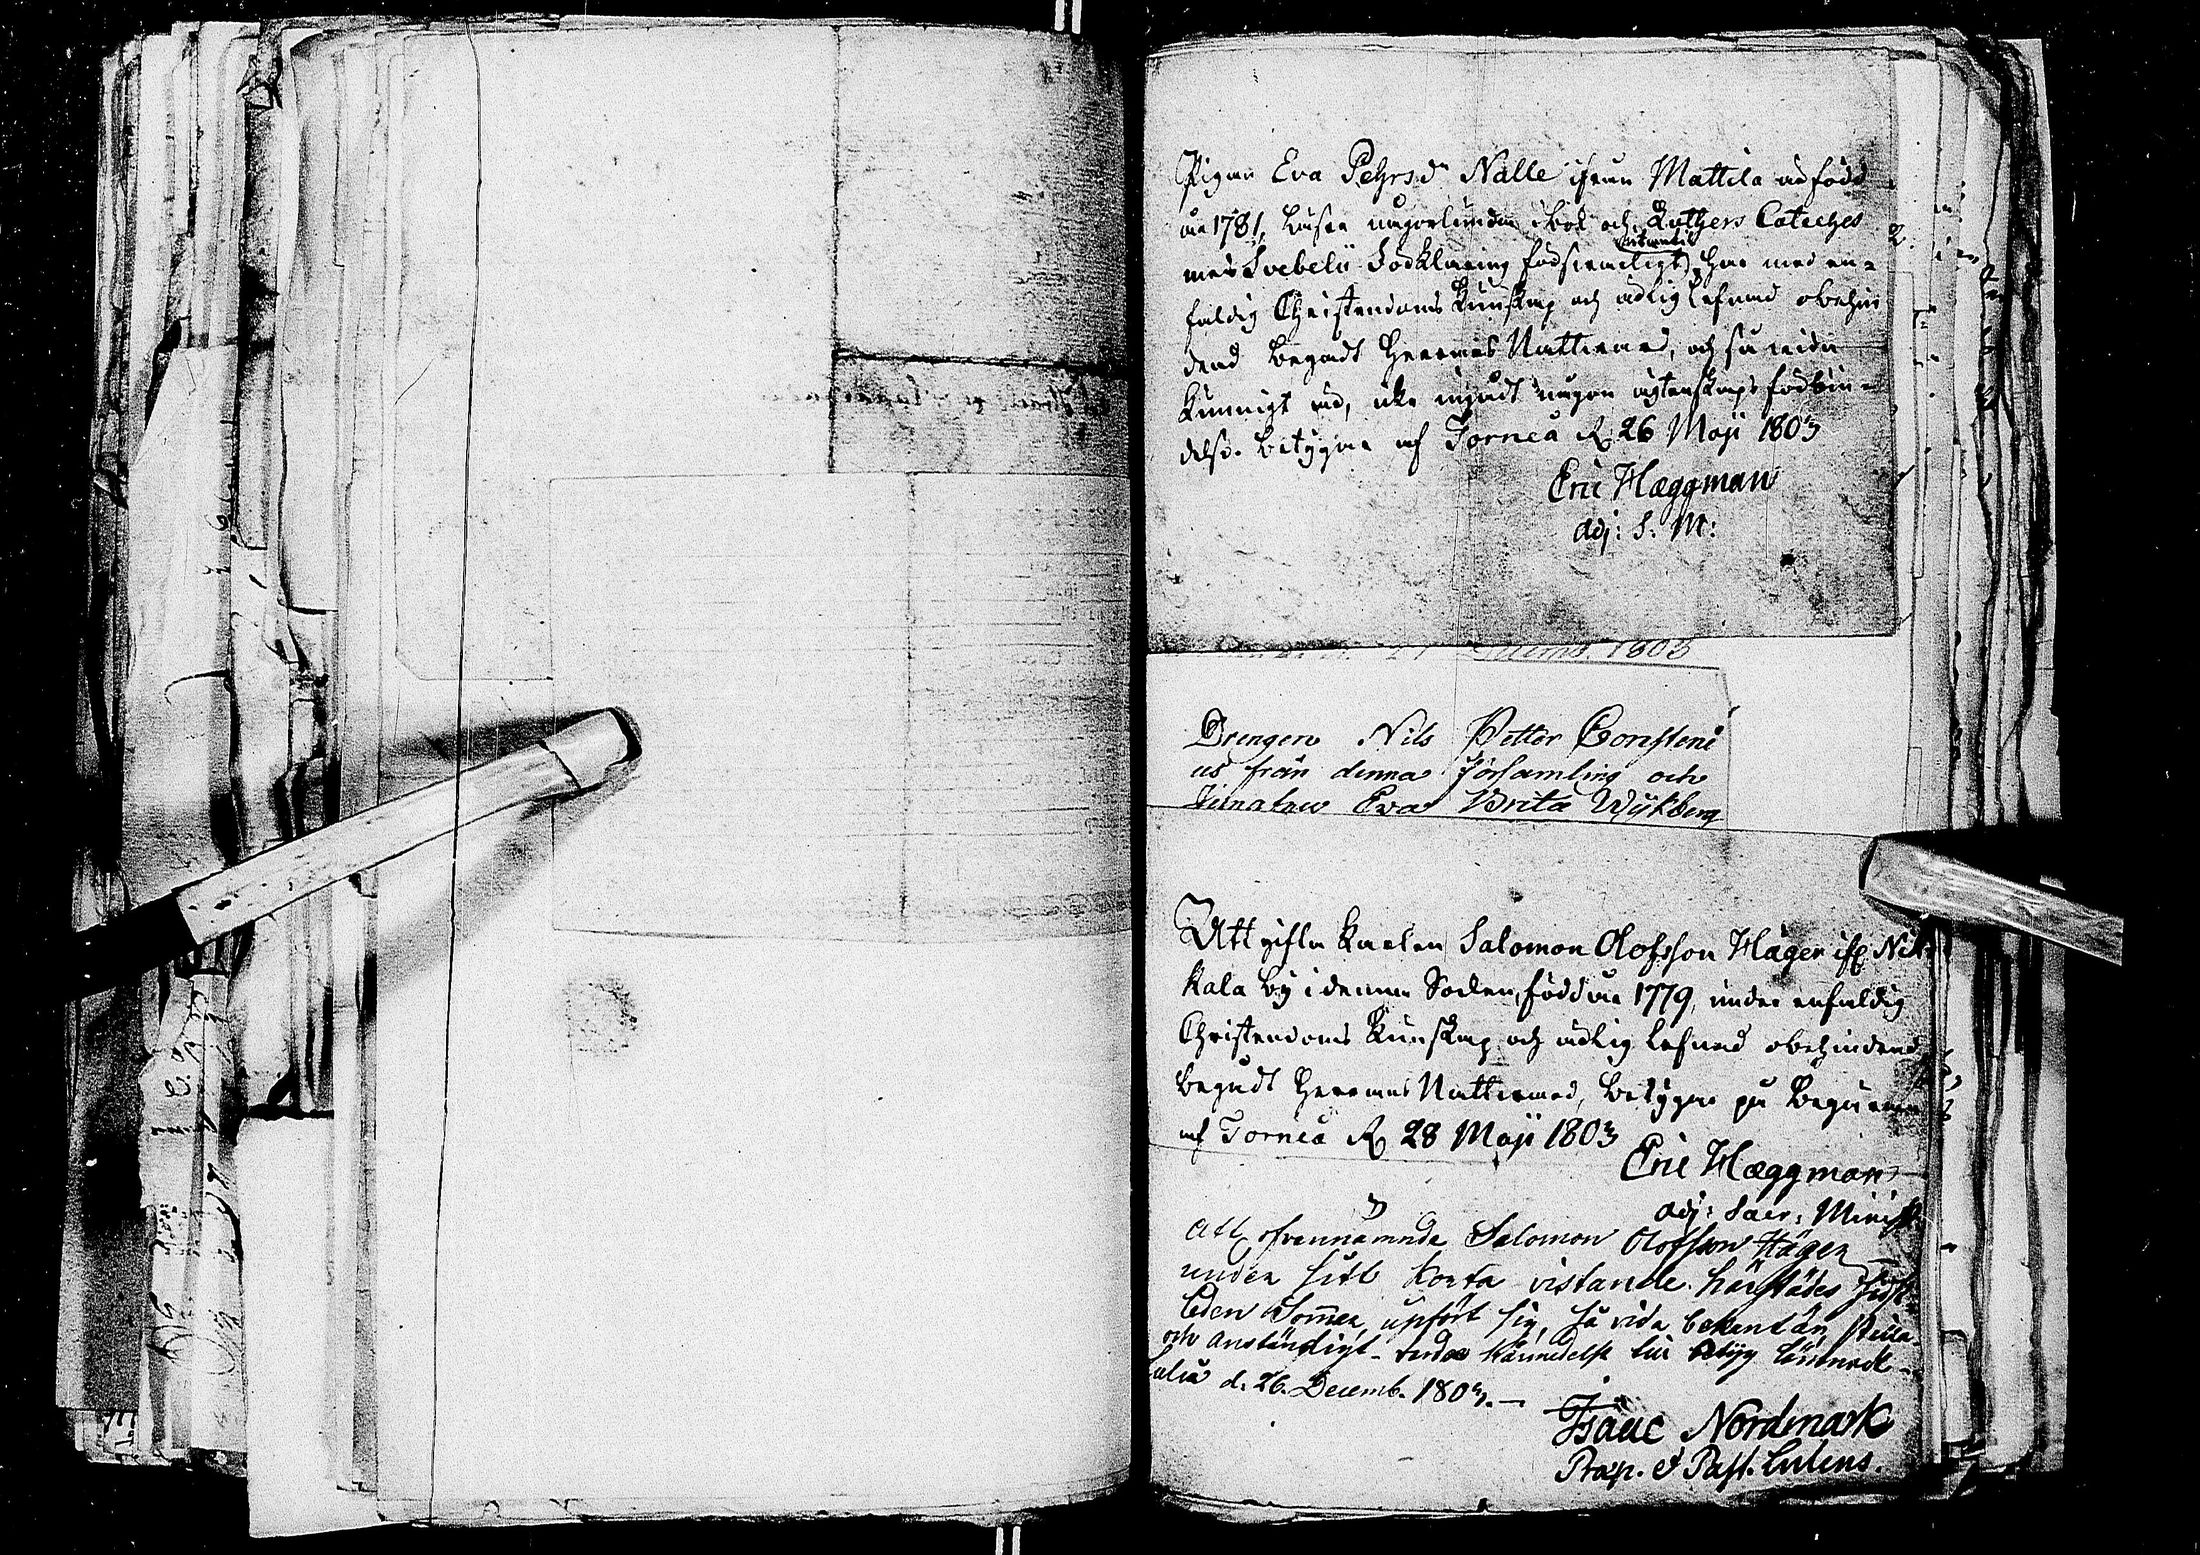 Pigan Eva Pehrsd:r Nalle ifrån Mattila är född
åa 1781, läser någorlunda i bok och Luthers Cateches
med Svebelii Förklaring försvarligit utantil, har med en=
faldig Christendoms Kunskap och ärlig lefnad obehin
drad begådt Herrans Nattvard, och så vida
kunnigt är, icke ingådt någon ägtenskaps förbin=
delse. betygar af Torneå d. 26 Maji 1803
Eric Hæggman
adj: S: M:
1803
Drengen Nils Petter Corsteni
us från denna församling och
Eva Brita Wijkberg
Att gifta karlen Salomon Olofsson Häger ifr. Nik
kala by i denna Socken, född åa 1779, under enfaldig
Christendoms Kunskap och ärlig lefnad obehindrad
begådt Herrans Nattvard, betygar på begäran
af Torneå d. 28 Maji 1803
Eric Hæggman
adj: Sacr: Minist
Att ofvannämnde Salomon Olofsson Häger
under sitt korta vistande härstädes sist=
leden Sommer, upfört sig, så vida bekant är, stilla
och anständigt
Luleå d. 26. Decemb. 1803.
Isaac Nordmark
Præp. & Past. Lulens.